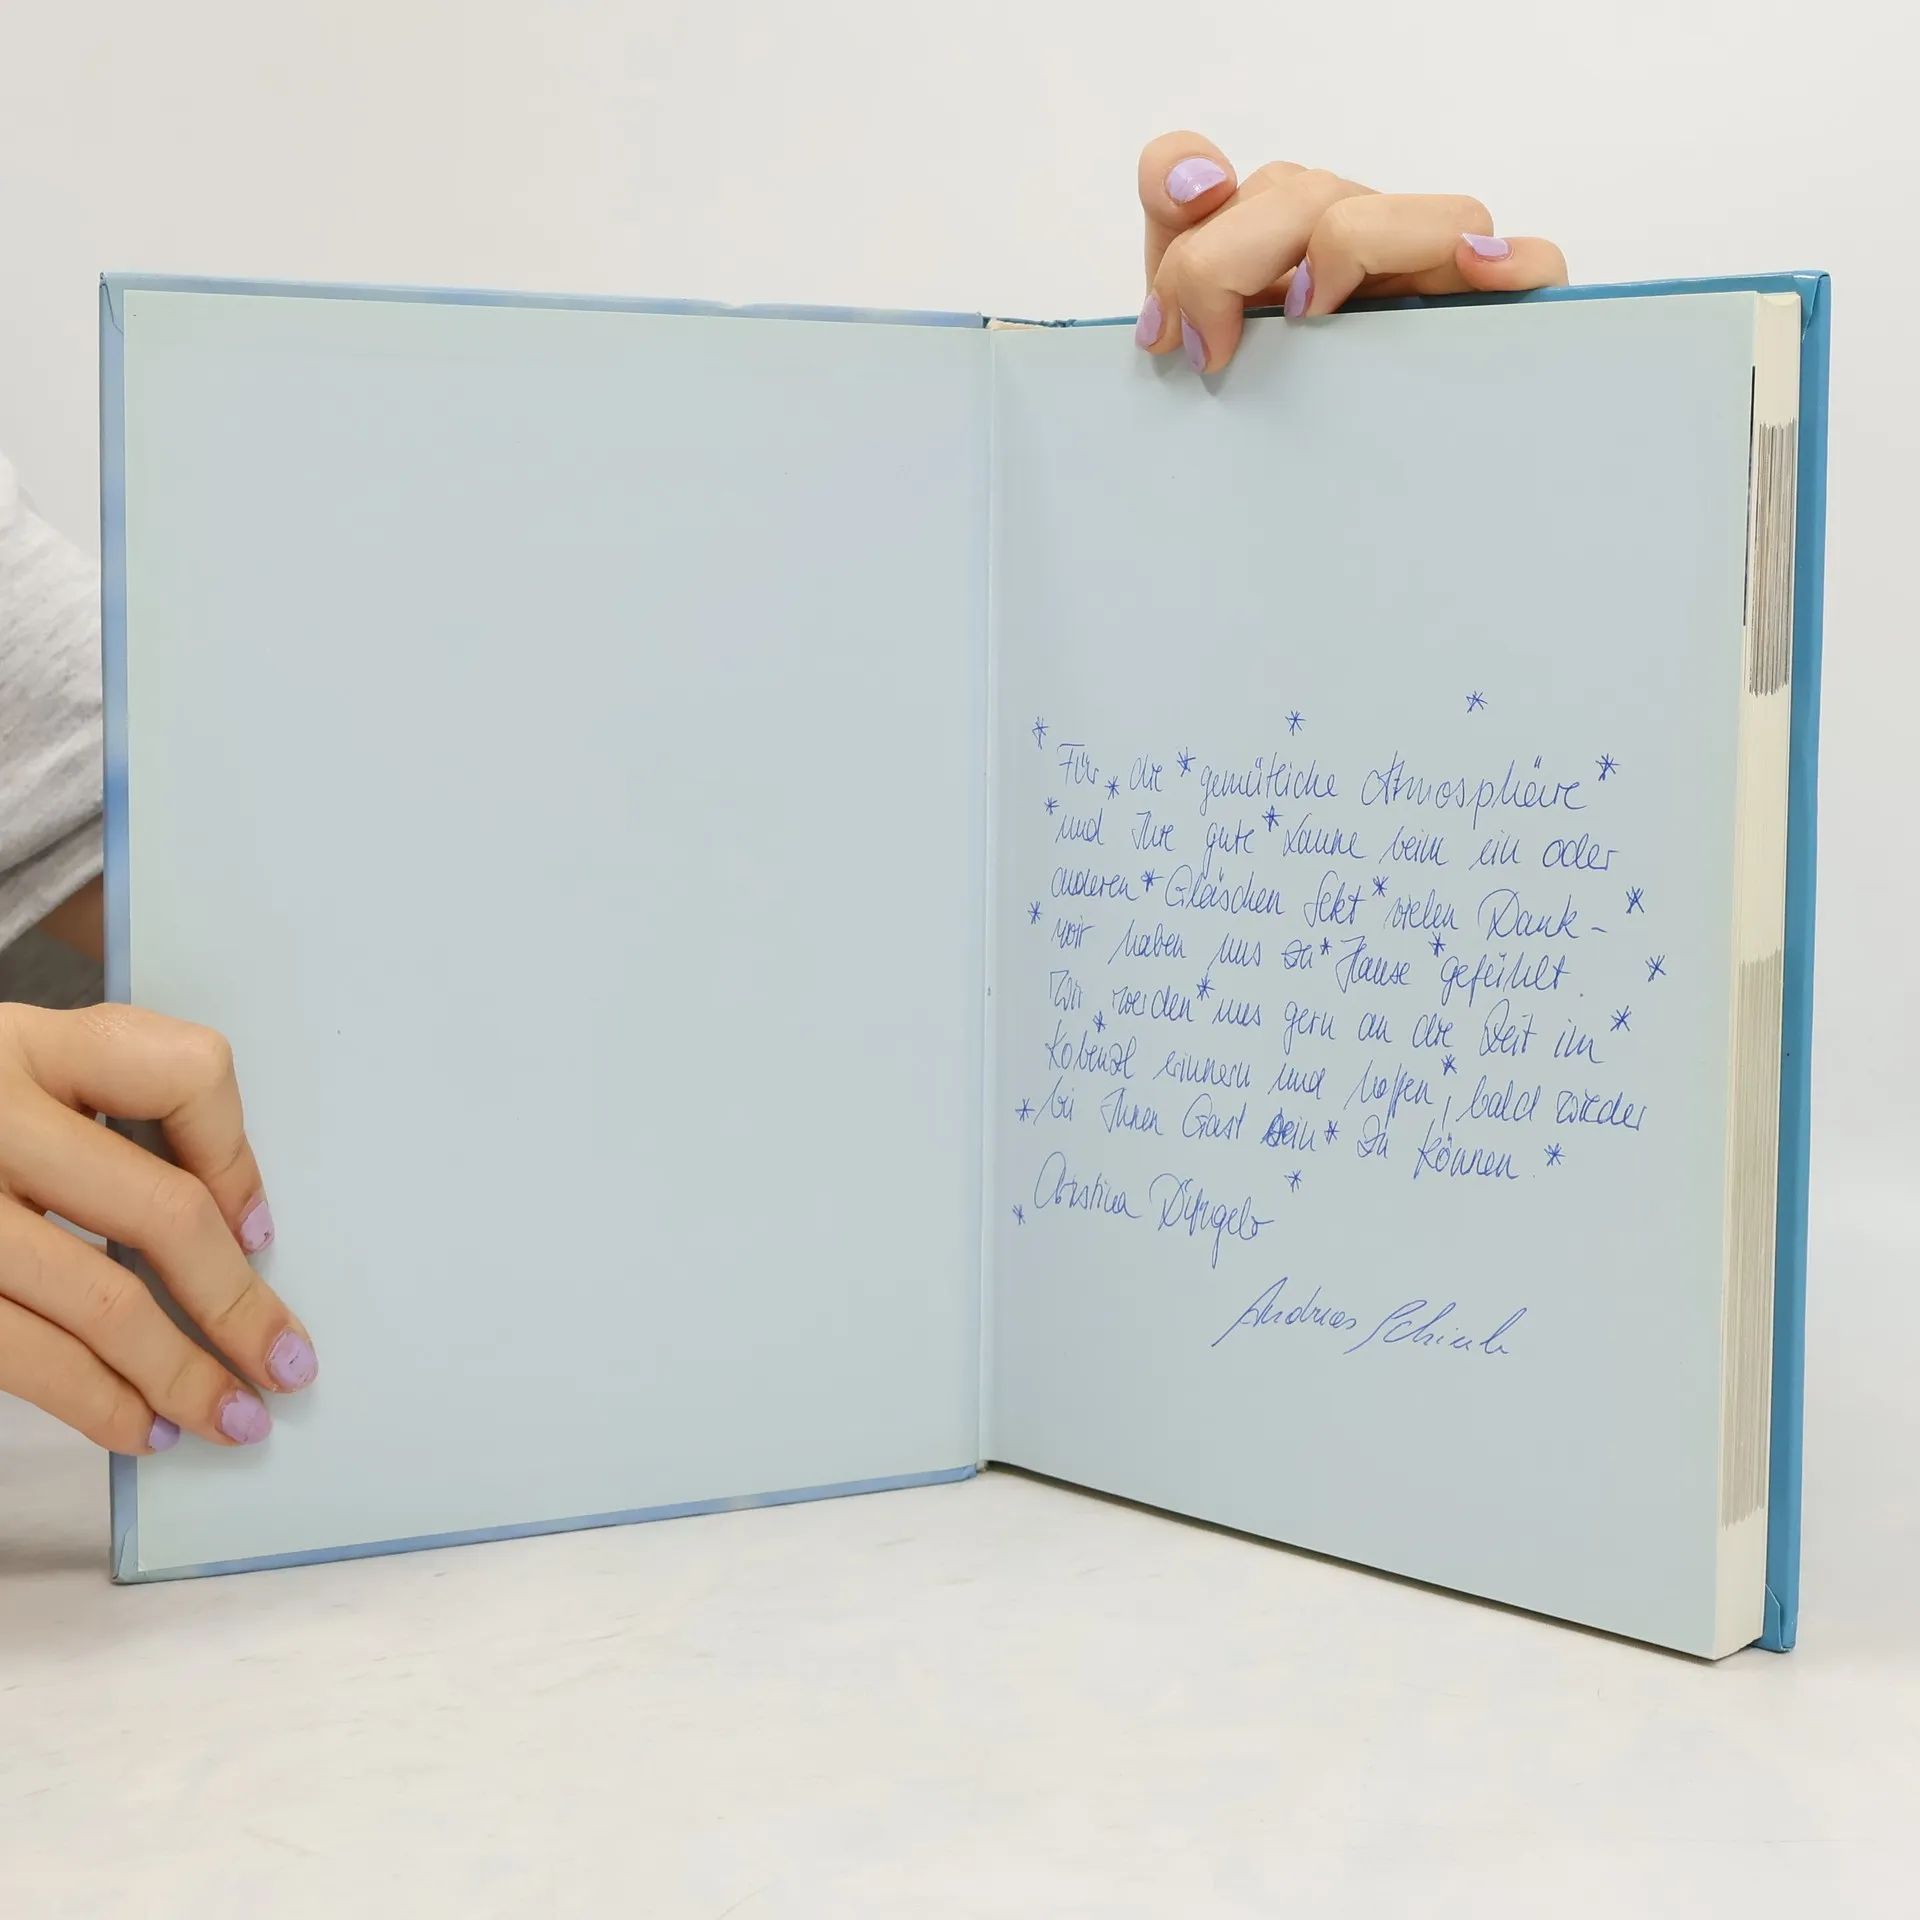 Für die gemütliche Atmosphäre
und Ihre gute Laune beim ein oder
anderen Gläschen Sekt vielen Dank -
wir haben uns zu Hause gefühlt.
Wir werden uns gern an die Zeit im
Kobenzl erinnern und hoffen, bald wieder
bei Ihnen Gast sein zu können.
Christina
Andreas